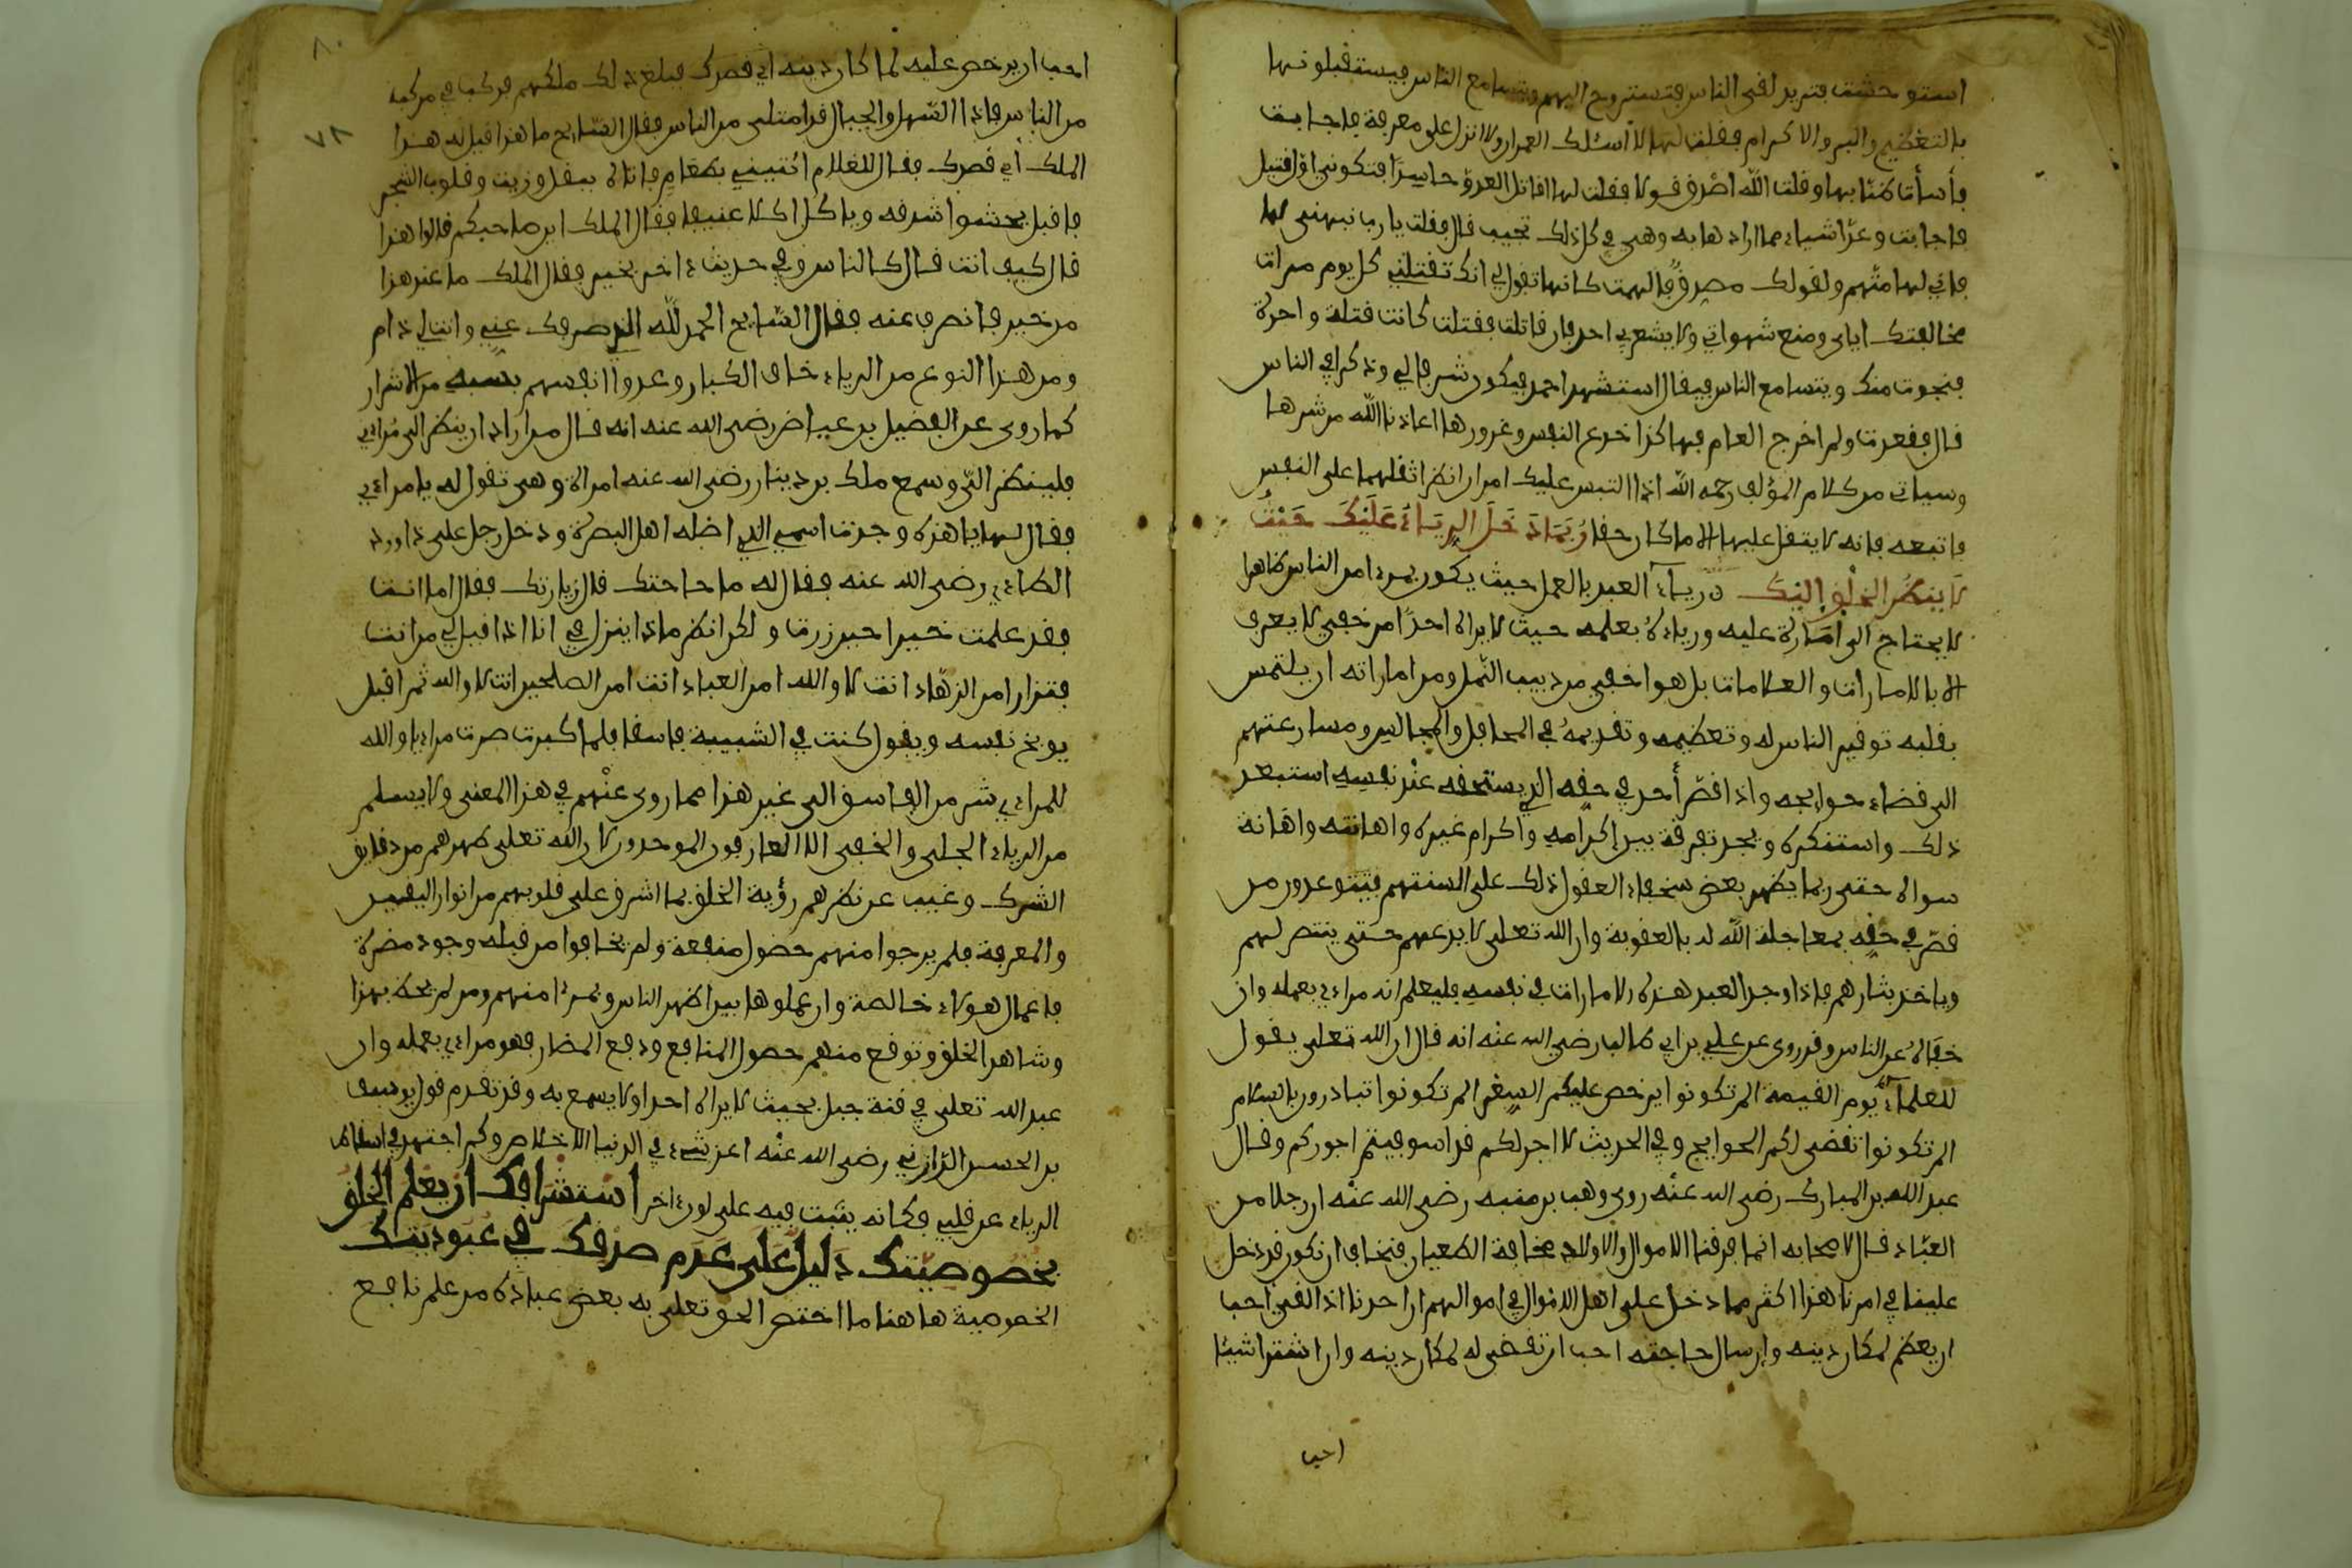 استوحشت فتريد لقى الناس فتستروح اليهم ويتسامع الناس فيستقبلونها
بالتعظيم والبر والاكرام فقلت لها لا اسئلك العمران ولا انزل على معرفة فاجابت
فأسأت ظنا بها وقلت الله اصدق قولا فقلت لها اقاتل العدو حاسرا فتكوني اول قتيل
فاجابت وعد اشياء مما ارادها به وهي في كل ذلك تجيب قال فقلت يا رب نبهني لها
فاني لها متهم ولقولك مصدق فالهمت كانها تقول لي انك تقتلني كل يوم مرات
بمخالفتك اياى ومنع شهواتي ولا يشعر بي احد فان قاتلت فقتلت كانت قتلة واحدة
فنجوت منك ويتسامع الناس فيقال استشهد احمد فيكون شرفا لي وذكرا في الناس
قال فقعدت ولم اخرج العام فهاكذا خدع النفس وغرورها اعاذنا الله من شرها
وسياتي من كلام المؤلف رحمه الله اذا التبس عليك امران انظر اثقلهما على النفس
فاتبعه فانه لا يثقل عليها الا ما كان حقا رُبَّمَا دَخَلَ الرِيَاءُ عَلَيْكَ حَيْثُ
لَا يَنظُرُ الْخَلْقُ إِلَيْكَ رياء العبد بالعمل حيث يكون بمرءا من الناس ظاهرا
لا يحتاج الى امارة عليه ورياءه بعلمه حيث لا يراه احدا من خفي لا يعرف
الا بالامارات والعلامات بل هو اخفى من دبيب النمل ومن اماراته ان يلتمس
بقلبه توقير الناس له وتعظيمه وتقديمه في المحافل والمجالس ومسارعتهم
الى قضاء حوايجه واذا قصر أحد في حقه الذي يستحقه عند نفسه استبعد
ذلك واستنكره ويجد تفرقة بين إكرامه واكرام غيره واهانته واهانة
سواه حتى ربما يظهر بعض سخفاء العقول ذلك على السنتهم فيتوعدون من
قصر في حقه بمعاجلة الله له بالعقوبة وان الله تعلى لا يدعهم حتى ينتصر لهم
وياخذ بثارهم فاذا وجد العبد هذه الامارات في نفسه فليعلم انه مراءي بعمله وان
خفاه عن الناس وقد روى عن علي بن ابي طالب رضي الله عنه انه قال ان الله تعلى يقول
للعلماء يوم القيمة الم تكونوا يرخص عليكم السعر الم تكونوا تبادرون بالسلام
الم تكونوا تقضى لكم الحوايج وفي الحديث لا اجر لكم قد استوفيتم اجوركم وقال
عبد الله بن المبارك رضى الله عنه روى وهب بن منبه رضى الله عنه ان رجلا من
العبّاد قال لاصحابه انما فرقنا الاموال والاولاد مخافة الطغيان فنخاف ان نكون قد دخل
علينا في امرنا هذا اكثر مما دخل على اهل الاموال في اموالهم ان احدنا اذا لقي احب
ان يعظم لمكان دينه وان سال حاجته احب ان تقضى له لمكان دينه وان اشترا شيئا
احب
٨٠
٧٨
احب ان يرخص عليه لما كان دينه اي قصرك فبلغ ذلك ملكهم فركب في مركبه
من الناس فاذا السهل والجبال قد امتلى من الناس فقال السايح ما هذا قيل له هذا
الملك أي قصرك فقال للغلام ائتيني بطعام فاتاه ببقل وزيت وقلوب الشجر
فاقبل يحشوا شدقه وياكل اكلا عنيفا فقال الملك اين صاحبكم قالوا هذا
قال كيف انت قال كالناس وفي حديث ءاخر بخير فقال الملك ما عند هذا
من خير فانصرف عنه فقال السايح الحمد لله الذي صرفك عني وانت لي ذام
ومن هذا النوع من الرياء خاف الكبار وعدوا انفسهم بسببه من الاشرار
كما روى عن الفضيل بن عياض رضى الله عنه انه قال من اراد ان ينظر الى مُراءي
فلينظر التي وسمع ملك بن دينار رضى الله عنه امراة وهى تقول له يا مراءي
فقال لها يا هذه وجدت اسمي الذي اضله اهل البصرة ودخل رجل على داوود
الطاءي رضى الله عنه فقال له ما حاجتك قال زيارتك فقال اما انت
فقد علمت خيرا حين زرت ولكن انظر ماذا ينزل بي انا اذا قيل لي من انت
فتزار امن الزهاد انت لا والله امن العباد انت امن الصلحين انت لا والله ثم اقبل
يوبخ نفسه ويقول كنت في الشبيبة فاسقا فلما كبرت صرت مراءيا والله
للمراءي شر من الفاسق الى غير هذا مما روى عنهم في هذا المعنى ولا يسلم
من الرياء الجلي والخفي الا العارفون الموحدون لان الله تعلى طهرهم من دقايق
الشرك وغيب عن نظرهم رؤية الخلق بما اشرق على قلوبهم من انوار اليقين
والمعرفة فلم يرجوا منهم حضول منفعة ولم يخافوا من قبله وجود مضرة
فاعمال هولاء خالصة وان عملوها بين اظهر الناس وبمرءا منهم ومن لم يحظ بهذا
وشاهد الخلق وتوقع منهم حصول المنافع ودفع المضار فهو مراءي بعمله وان
عبد الله تعلى في قنة جبل بحيث لا يراه احد ولا يسمع به وقد تقدم قول يوسف
بن الحسين الرازي رضى الله عنه اعز شيء في الدنيا الاخلاص وكم اجتهد في اسقاط
الرياء عن قلبي فكانه ينبت فيه على لون ءاخر استشرافك ان يعلم الخلق
بخصوصيتك دليل على عدم صدقك في عبوديتك
الخصوصية هاهنا ما اختص الحق تعلى به بعض عباده من علم نافع